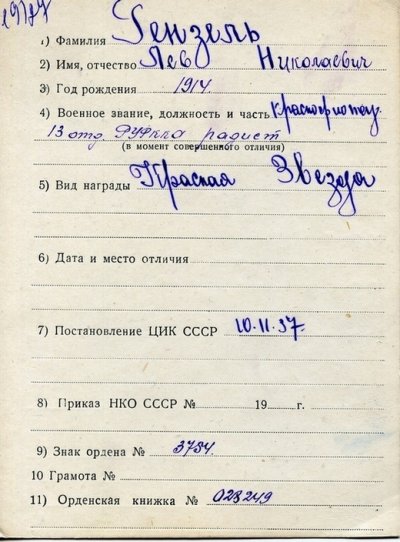 19177
1) Фамилия Гензель
2) Имя, отчество Лев Николаевич
3) Год рождения 1914
4) Военное звание, должность и часть Краснофлотец
13 отд. РУРККА радист
(в момент совершенного отличия)
5) Вид награды Красная Звезда
6) Дата и место отличия
7) Постановление ЦИК СССР 10.11.37.
8) Приказ НКО СССР № 19 г.
9) Знак ордена № 3754
10 Грамота №
11) Орденская книжка № 023249